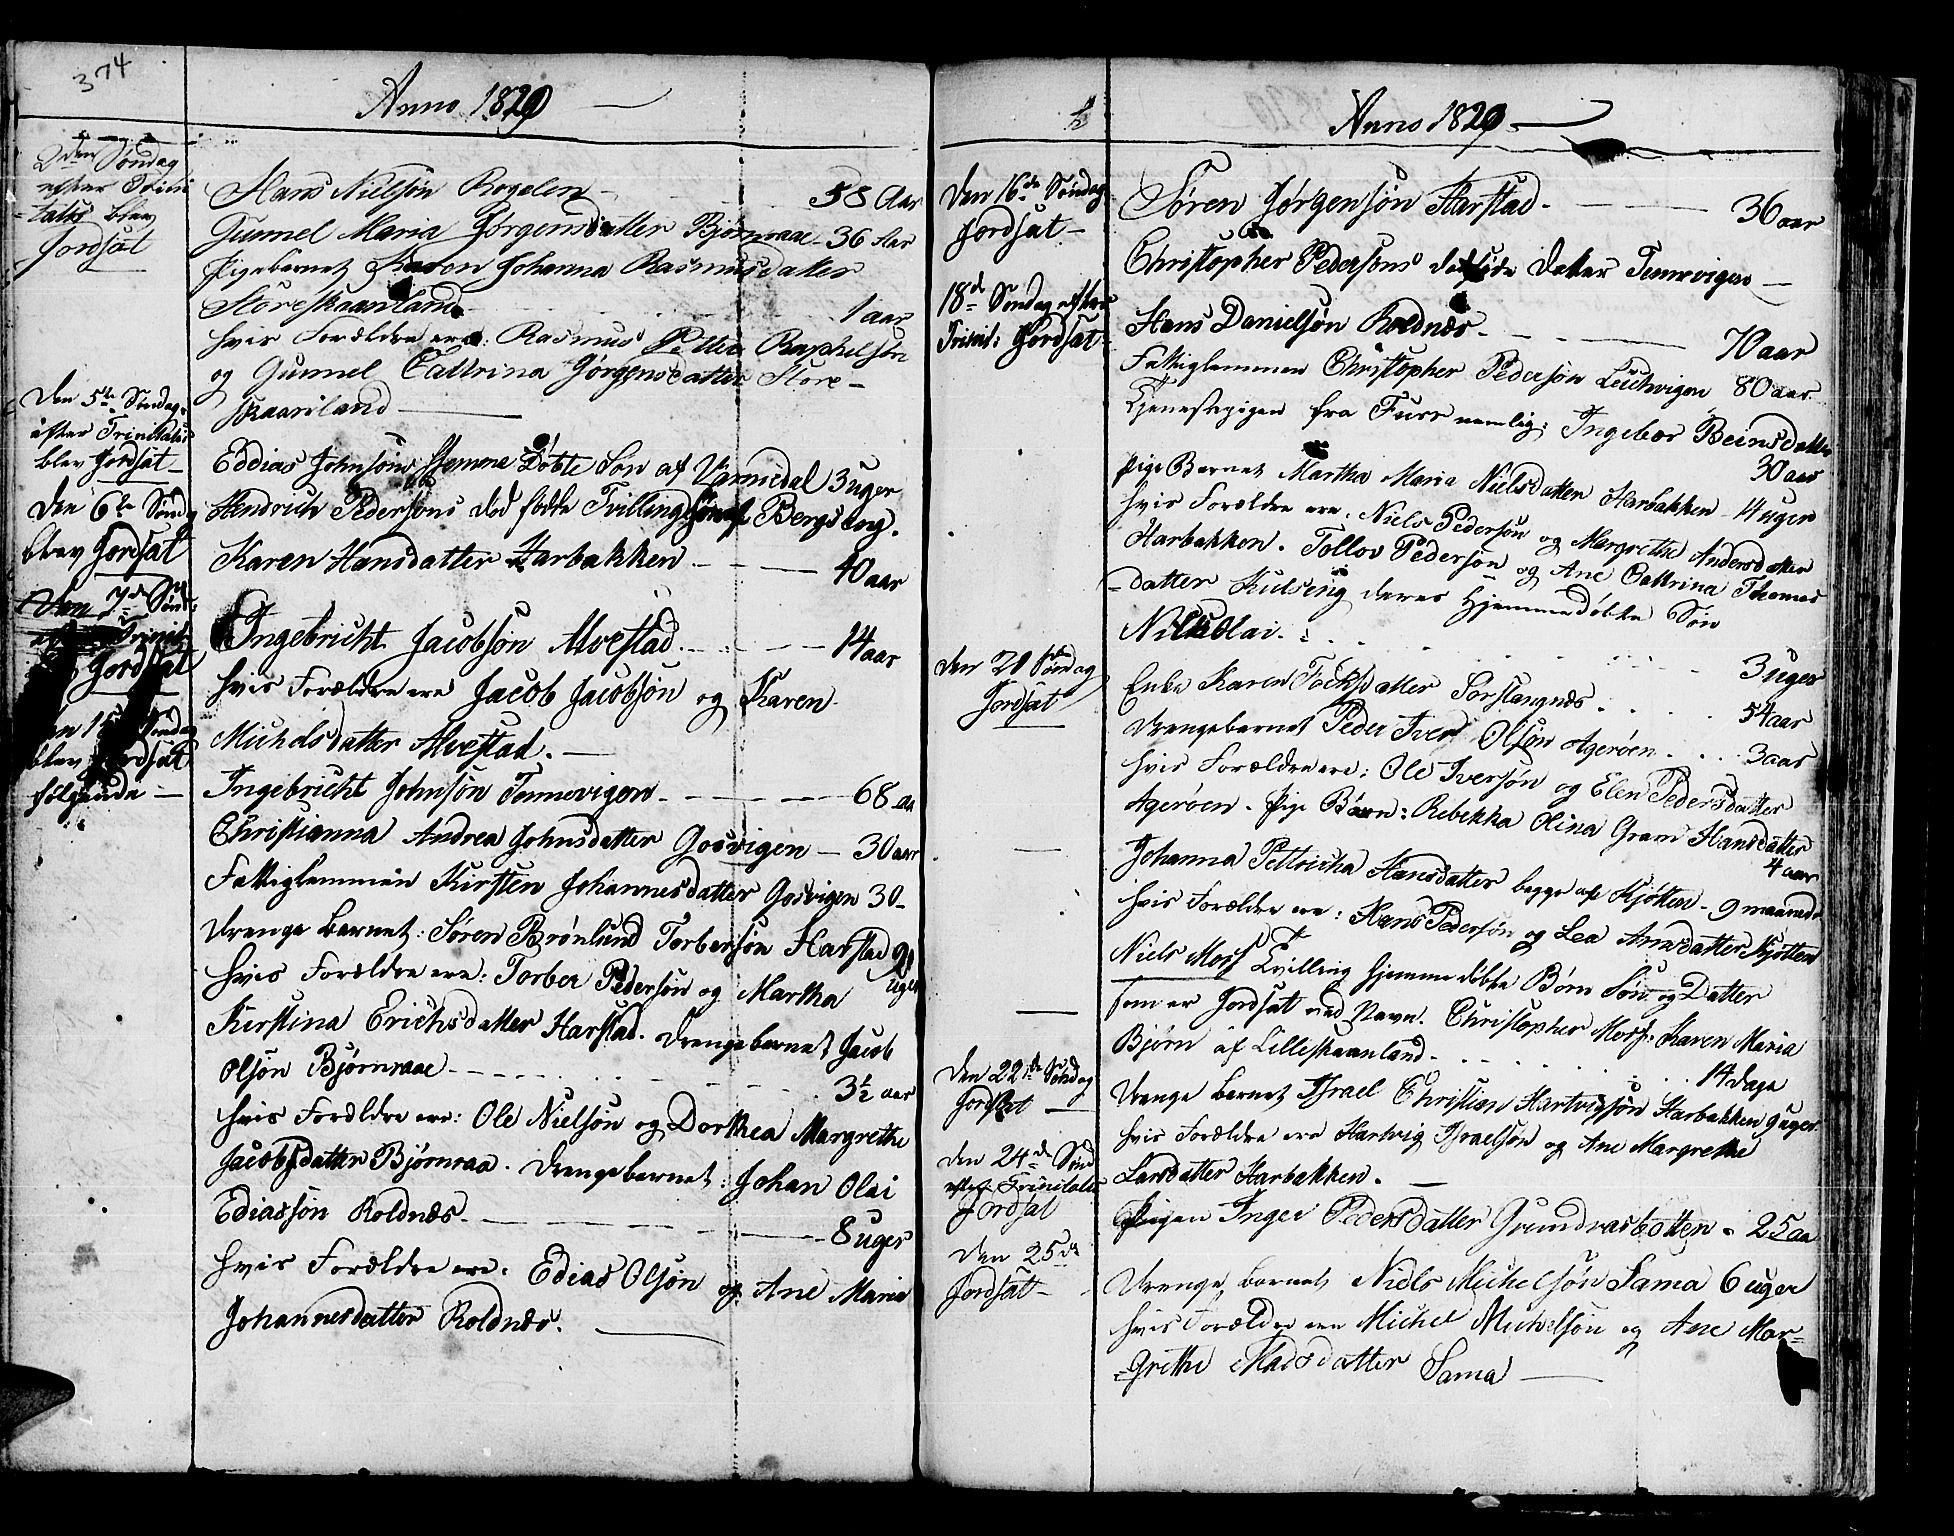 374
Anno 1829
2den Søndag
efter Trini
tatis blev
Jordsat
Hans Nielsøn Rogelen 58 Aar
Gunnel Maria Jørgensdatter Biørnraae 36 Aar
Pigebarnet Karen Johanna Rasmusdatter
Storeskaanland 1 aar
hvis Forældre ere: Rasmus Petter Raphelsøn
og Gunnel Cattrina Jørgensdatter Store-
skaanland
Den 5te Søndag
efter Trinitatis
blev Jordsat
Eddias Johnsøns Hjemme Døbte Søn af 3 uger
Den 6te Sønd
blev Jordsat
Hendrich Pedersøns død fødte Tvilling Søn af Bergs eng.
Karen Hansdatter Harbakken 40 aar
Den 7de Sønd:
Trinit
Jordsat
Ingebricht Jacobsøn Alvestad 14 aar
hvis Forældre ere Jacob Jacobsøn og Karen
Michelsdatter Alvestad.
blev Jordsat
følgende
Ingebricht Johnsøn Tennevigen 68 aa
Christianna Andrea Johnsdatter Gosvigen 30 aar
Fattiglemmen Kirsten Johannesdatter Gosvigen 30
Drenge barnet: Søren Brønlund Torbersøn Harstad 9
uger
hvis Forældre ere: Torber Pedersøn og Martha
Kirstina Erichsdatter Harstad. Drengebarnet Jacob
Olsøn Bjørnraae 3½ aar
hvis Forældre ere: Ole Nielsøn og Dorthea Margrethe
Jacobsdatter Bjørnraa. Drengebarnet: Johan Olai
Ediassøn Roldnæs 8 uger
hvis Forældre ere: Edias Olsøn og Ane Maria
Johannesdatter Roldnæs.
Anno 1829
Den 16de Søndag
Jordsat
Søren Jørgensøn Harstad 36 aar
Christopher Pedersøns Datter Tennevigen
18de Søndag efter
Trinit: Jordsat
Hans Danielsøn Roldnæs 70 aar
Fattiglemmen Christopher Pedersøn 80 aar
Tjenestepigen fra nemlig: Ingebor Beinsdatter
30 aar
Pige Barnet Martha Maria Nielsdatter Harbakken 14 uger
hvis Forældre ere. Niels Pedersøn og Margrethe Andersdatter
Harbakken. Tollov Pedersøn og Ane Cattrina Thomas
datter Kulseng deres Hjemmedøbte Søn
Nickolai. 3 uger
Den 20de Søndag
Jordsat
Enke Karen datter Sørslangnæs 54 aar
Drengebarnet Peder Iver Olsøn Agerøen 3 aar
hvis Forældre ere: Ole Iversøn og Elen Pedersdatter
Agerøen. Pige Børn: Rebekka Olina Gram Hansdatter
4 aar
Johanna Pettricka Hansdatter begge af Kjøtten 9 maaneder
hvis Forældre ere: Hans Pedersøn og Lea Arnsdatter Kjøtten
Niels Mors Tvilling hjemme døbte Børn Søn og Datter
som er Jordsat ved Navn. Christopher Mors: Karen Maria
Bjørn af Lilleskaanland 14 dage
Den 22de Søndag
Jordsat
Drenge barnet Israel Christian Hartvigsøn Harbakken 9 uger
hvis Forældre ere Hartvig Israelsøn og Ane Margrethe
Larsdatter Harbakken.
Den 24de Sønd
efter Trinitatis
Jordsat
Pigen Inger Pedersdatter Grundnæsbotten 25 aa
Den 25de
Jordsat
Drenge barnet Niels Michelsøn Sama 6 uger
hvis Forældre ere Michel Michelsøn og Ane Mar-
grethe Madsdatter Sama